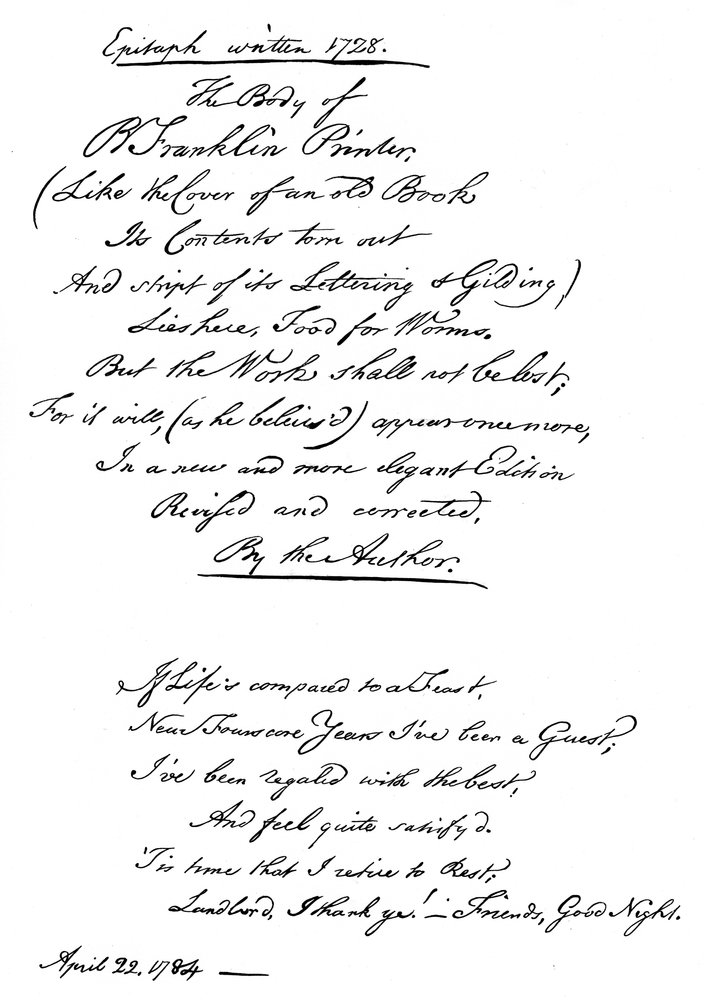 Epitaph written 1728.
The Body of
B Franklin Printer,
(Like the Cover of an old Book
Its Contents torn out
And stript of its Lettering & Gilding)
Lies here, Food for Worms.
But the Work shall not be lost;
For it will, (as he believ'd) appear once more,
In a new and more elegant Edition
Revised and corrected,
By the Author.
If Life's compared to a Feast,
Near Fourscore Years I've been a Guest;
I've been regaled with the best,
And feel quite satisfyd.
'Tis time that I retire to Rest;
Landlord, I thank ye! — Friends, Good Night.
April 22, 1784 —